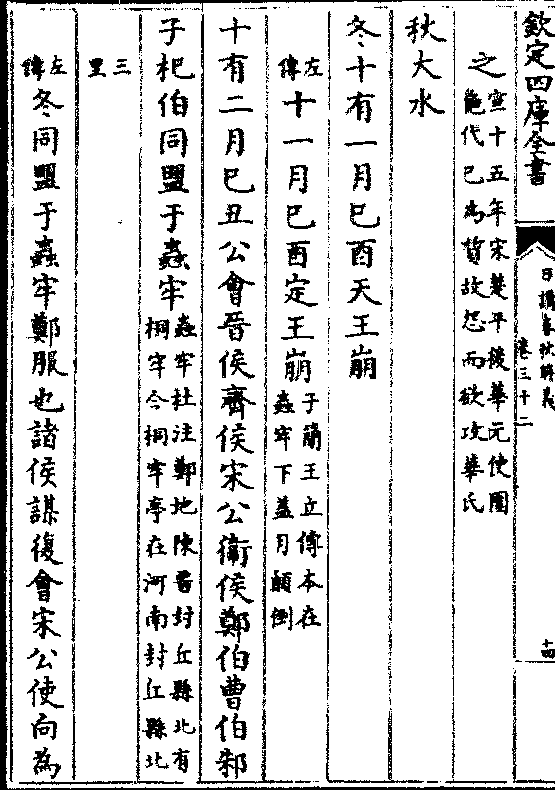 欽定四庫全書
日講春秋解義
卷三十二
十四
之
宣十五年宋楚平後華元使圍
龜代已為質故怨而欲攻華氏
秋大水
冬十有一月己酉天王崩
左傳
十一月己酉定王崩
子簡王立傳本在
蟲牢下葢月顛倒
十有二月己丑公會晉侯齊侯宋公衞侯鄭伯曹伯邾
子杞伯同盟于蟲牢
蟲牢杜注鄭地陳畱封丘縣北有
桐牢今桐牢亭在河南封丘縣北
三里
左傳
冬同盟于蟲牢鄭服也諸侯謀復會宋公使向為